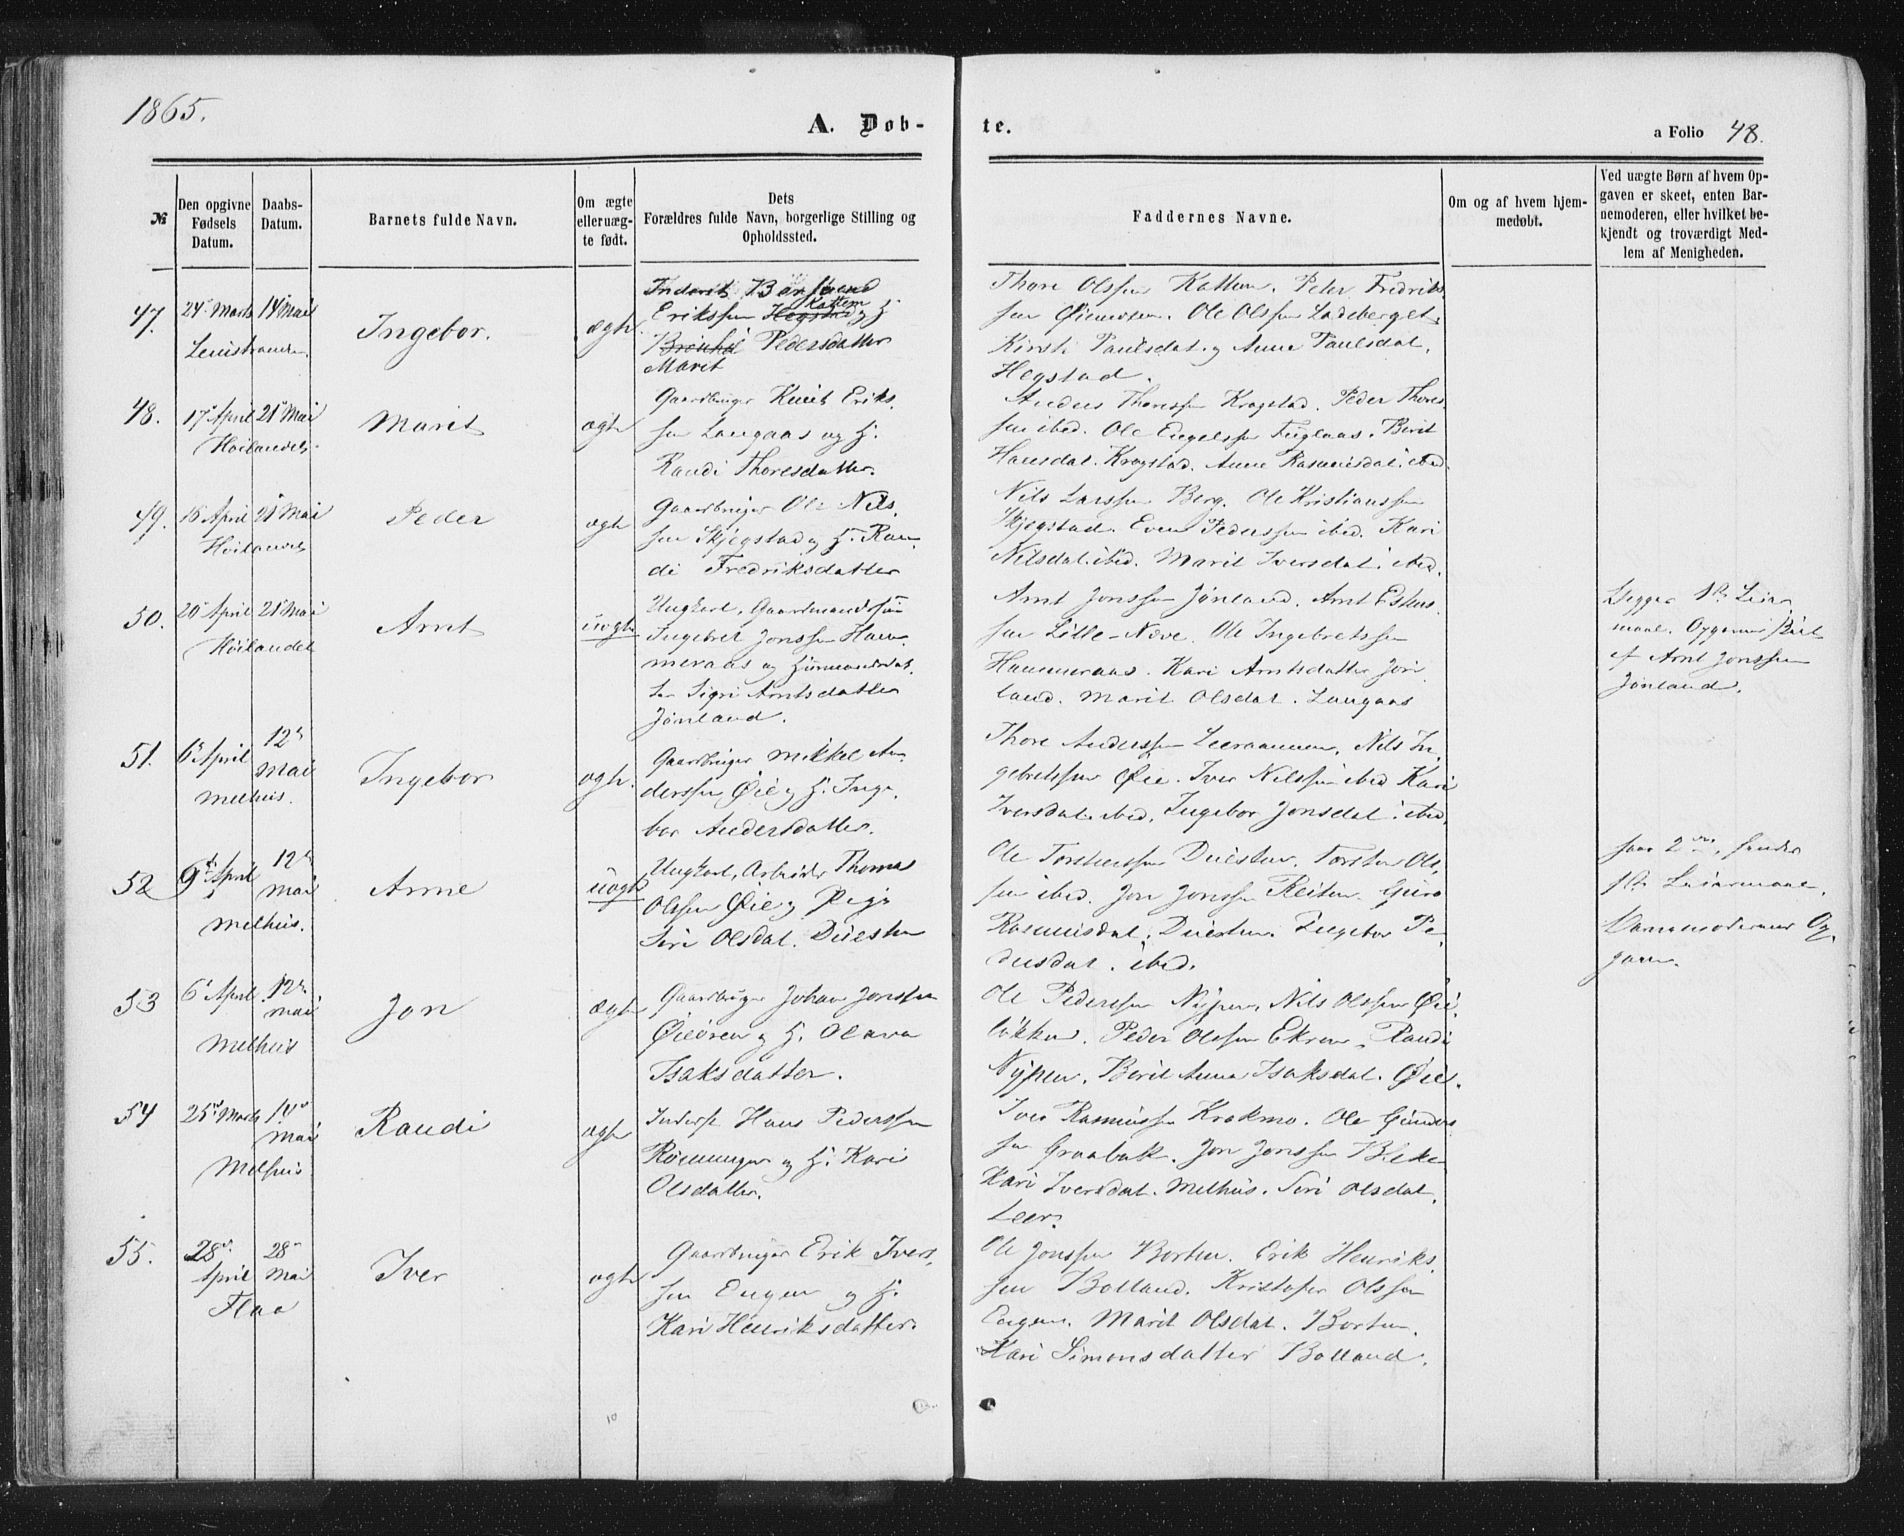 1865.
A. Døb-
te.
a Folio 48.
№
Den opgivne Fødsels Datum.
Daabs-Datum.
Barnets fulde Navn.
Om ægte eller uæg-te født.
Dets Forældres fulde Navn, borgerlige Stilling og Opholdssted.
Faddernes Navne.
Om og af hvem hjem-medøbt.
Ved uægte Børn af hvem Op-gaven er skeet, enten Bar-nemoderen, eller hvilket be-kjendt og troværdigt Med-lem af Menigheden.
47. 24 Marts 14 Mai
Ingebor.
ægte
Eriksen Hegstad og H.
Kattem
Pedersdatter
Marit
Thore Olssen Kattem. Peter Fredriks
sen Øiemoen. Ole Olssen Ladeberget
Kirsti Paulsdat. og Anne Paulsdat.
Hegstad.
48. 17 April 21 Mai
Høilandet
Marit
ægte
Gaardbruger Knut Eriks.
sen Langaas og H.
Randi Thoresdatter.
Anders Thoressen Krogstad. Peder Thores
sen ibid. Ole Engelssen Fuglaas. Berit
Hansdat. Krogstad. Anne Rasmusdat. ibid.
49. 16 April 21 Mai
Høilandet
Peder
ægte
Gaardbruger Ole Nils.
sen Skjegstad og H. Ran
di Fredriksdatter
Nils Larssen Berg. Ole Kristianssen
Skjegstad. Even Pederssen ibid. Kari
Nilsdat. ibid. Marit Iversdat. ibid.
50. 20 April 21 Mai
Høilandet
Arnt
uægte
Ungkarl, Gaardmandssøn
Ingebret Jonssen Ham
meraas og Huusmandsdat.
ter Sigri Arntsdatter
Jønland.
Arnt Jonssen Jønland. Arnt Estens
sen Lille-Næve. Ole Ingebretssen
Hammeraas. Kari Arntsdatter Jøn
land. Marit Olsdat. Langaas
Begges 1ste Leier
maal. Opgivnes
af Arnt Jonssen
Jønland.
51. 6 April 12 Mai
Melhus.
Ingebor
ægte.
Gaardbruger Mikkel An
derssen Øie og H. Inge
bor Andersdatter.
Thore Anderssen Leeraamoen, Nils In
gebretssen Øie. Iver Nilssen ibid Kari
Iversdat. ibid. Ingebor Jonsdat. ibid.
52 9 April 12 Mai
Melhus.
Arne
uægte
Ungkarl, Arbeider Thomas
Olssen Øie og Pige
Siri Olsdat. Duesten
Ole Torstenssen Duesten. Torsten Ols
sen ibid. Jon Jonssen Reiten. Guro
Rasmusdat. Duesten. Ingebor Pe
dersdat. ibid.
2det, hendes
1ste Leiermaal.
Barnemoderens Op
gave.
53 6 April 12 Mai
Melhus
Jon
ægte
Gaardbruger Johan Jonssen
Øieøren og H. Olava
Isaksdatter.
Ole Pederssen Nypen. Nils Olssen Øie
løkken. Peder Olssen Ekren. Randi
Nypen. Berit Anna Isaksdat. Øie.
54 25 Marts 14 Mai
Melhus
Randi
ægte
Inderst Hans Pederssen
og H. Kari
Olsdatter.
Iver Rasmussen Krokmo. Ole Gunders
sen Graabak. Jon Jonssen Blekes
Kari Iversdat. Melhus. Siri Olsdat.
Leer.
55. 28 April 28 Mai
Flaa
Iver
ægte
Gaardbruger Erik Ivers.
sen Engen og H.
Kari Henriksdatter.
Ole Jonssen Borten. Erik Henriks.
sen Bolland. Kristofer Olssen
Engen. Marit Olsdat. Borten.
Kari Simonsdatter Bolland.